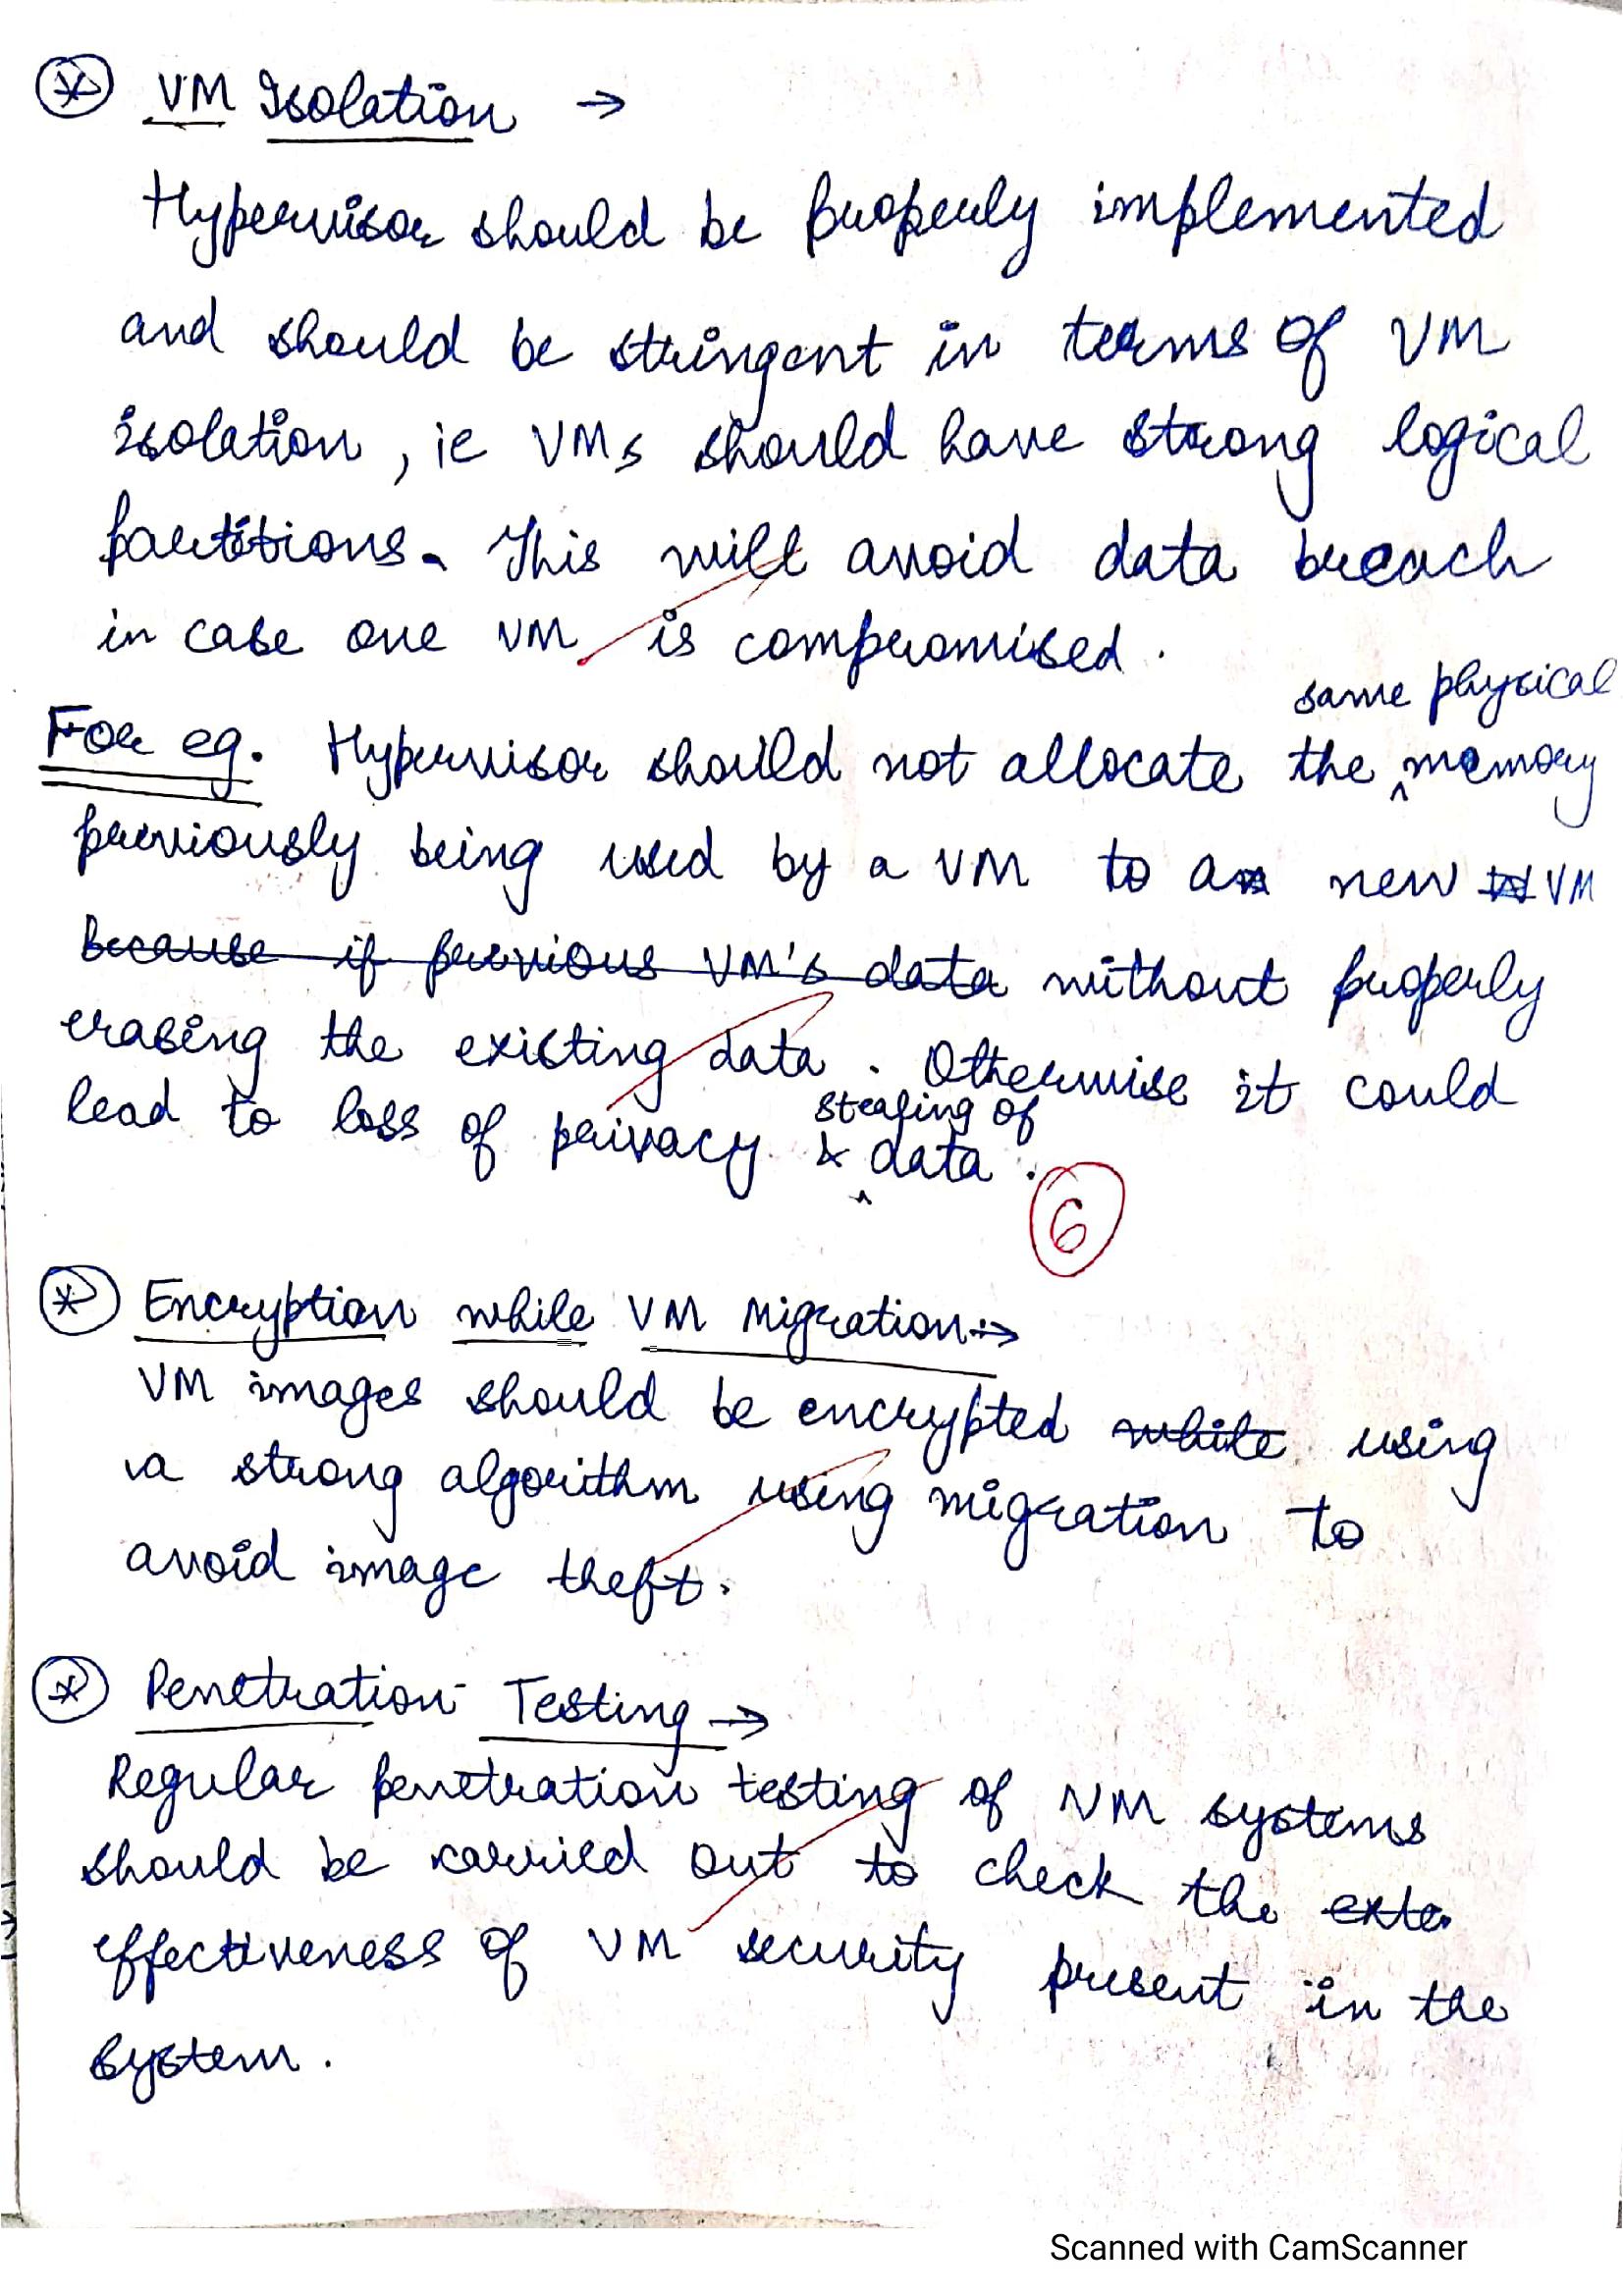 VM Isolation →
Hypervisor should be properly implemented
and should be stringent in terms of VM
isolation, ie VMs should have strong logical
partitions. This will avoid data breach
in case one VM is compromised.
same physical
For eg. Hypervisor should not allocate the ^ memory
previously being used by a VM to a new VM
because if previous VM's data without properly
erasing the existing data. Otherwise it could
stealing of
lead to loss of privacy & ^ data.
6
Encryption while VM Migration →
VM images should be encrypted while using
a strong algorithm using migration to
avoid image theft.
Penetration Testing →
Regular penetration testing of VM systems
should be carried out to check the exte
effectiveness of VM security present in the
system.
Scanned with CamScanner